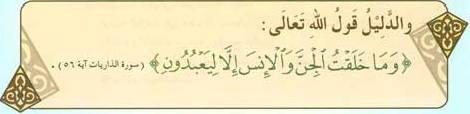 والدَّلِيْلُ قَولُ اللهِ تَعَالَى:
﴿وَمَا خَلَقْتُ الْجِنَّ وَالْإِنسَ إِلَّا لِيَعْبُدُونِ﴾ (سورة الذاريات آية ٥٦).